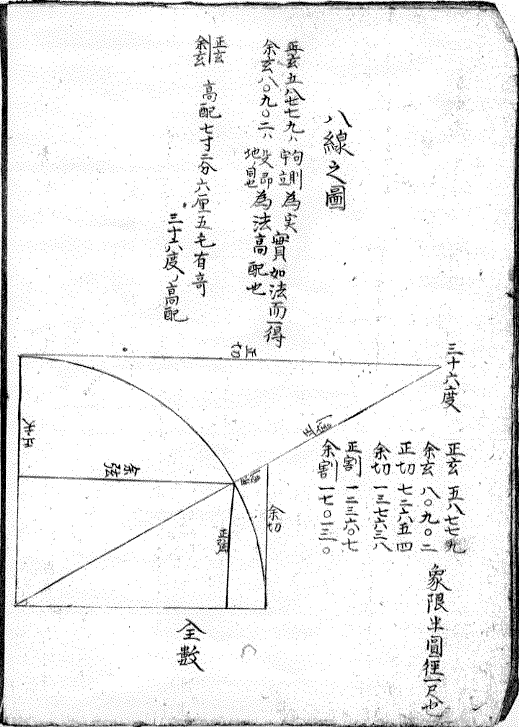 八線之圖
正玄五八七七九、句 中立則為実
余玄八〇九〇二、殳即為法高配也
地自也
實如法而一得
正玄
余玄
高配七寸二分六厘五毛有奇
三十六度ノ高配
三十六度
正玄 五八七七九
余玄 八〇九〇二
正切 七二六五四
余切 一三七六三八
正割 一二三六〇七
余割 一七〇一三〇
象限半圓径一尺也
正切
余弦
正弦
余切
全數